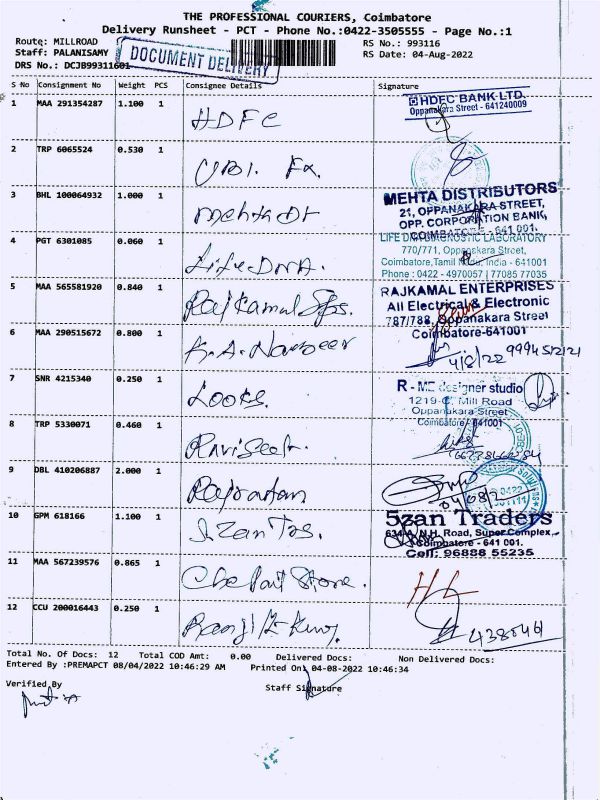 THE PROFESSIONAL COURIERS, Coimbatore
Delivery Runsheet - PCT - Phone No.:0422-3505555 - Page No.:1
Route: MILLROAD
RS No.: 993116
Staff: PALANISAMY
RS Date: 04-Aug-2022
DOCUMENT DELIVERY
DRS No.: DCJB99311601
S No Consignment No Weight PCS Consignee Details Signature
1 MAA 291354287 1.100 1 HDFC
HDFC BANK LTD.
Oppanakara Street - 641240009
2 TRP 6065524 0.530 1 UBI. Fx.
3 BHL 100064932 1.000 1 Mehta Dt
MEHTA DISTRIBUTORS
21, OPPANAKARA STREET,
OPP. CORPORATION BANK,
COIMBATORE - 641 001.
4 PGT 6301085 0.060 1 Life DNA.
LIFE DNA DIAGNOSTIC LABORATORY
770/771, Oppanakara Street,
Coimbatore,Tamil Nadu, India - 641001
Phone : 0422 - 4970057 | 77085 77035
5 MAA 565581920 0.840 1 Rajkamal
RAJKAMAL ENTERPRISES
All Electrical & Electronic
787/788, Oppanakara Street
Coimbatore-641001
6 MAA 290515672 0.800 1 K.A. Navseer
4/8/22
7 SNR 4215340 0.250 1 Looks
R - ME designer studio
1219-C, Mill Road
Oppanakara Street
Coimbatore - 641001
8 TRP 5330071 0.460 1
9 DBL 410206887 2.000 1 Rajratan
04/08/2
10 GPM 618166 1.100 1 5zan Trs.
5zan Traders
634-A, N.H. Road, Super Complex
Coimbatore - 641 001.
Cell: 96888 55235
11 MAA 567239576 0.865 1 Store.
12 CCU 200016443 0.250 1
Total No. Of Docs: 12 Total COD Amt: 0.00 Delivered Docs: Non Delivered Docs:
Entered By :PREMAPCT 08/04/2022 10:46:29 AM Printed On: 04-08-2022 10:46:34
Verified By
Staff Signature